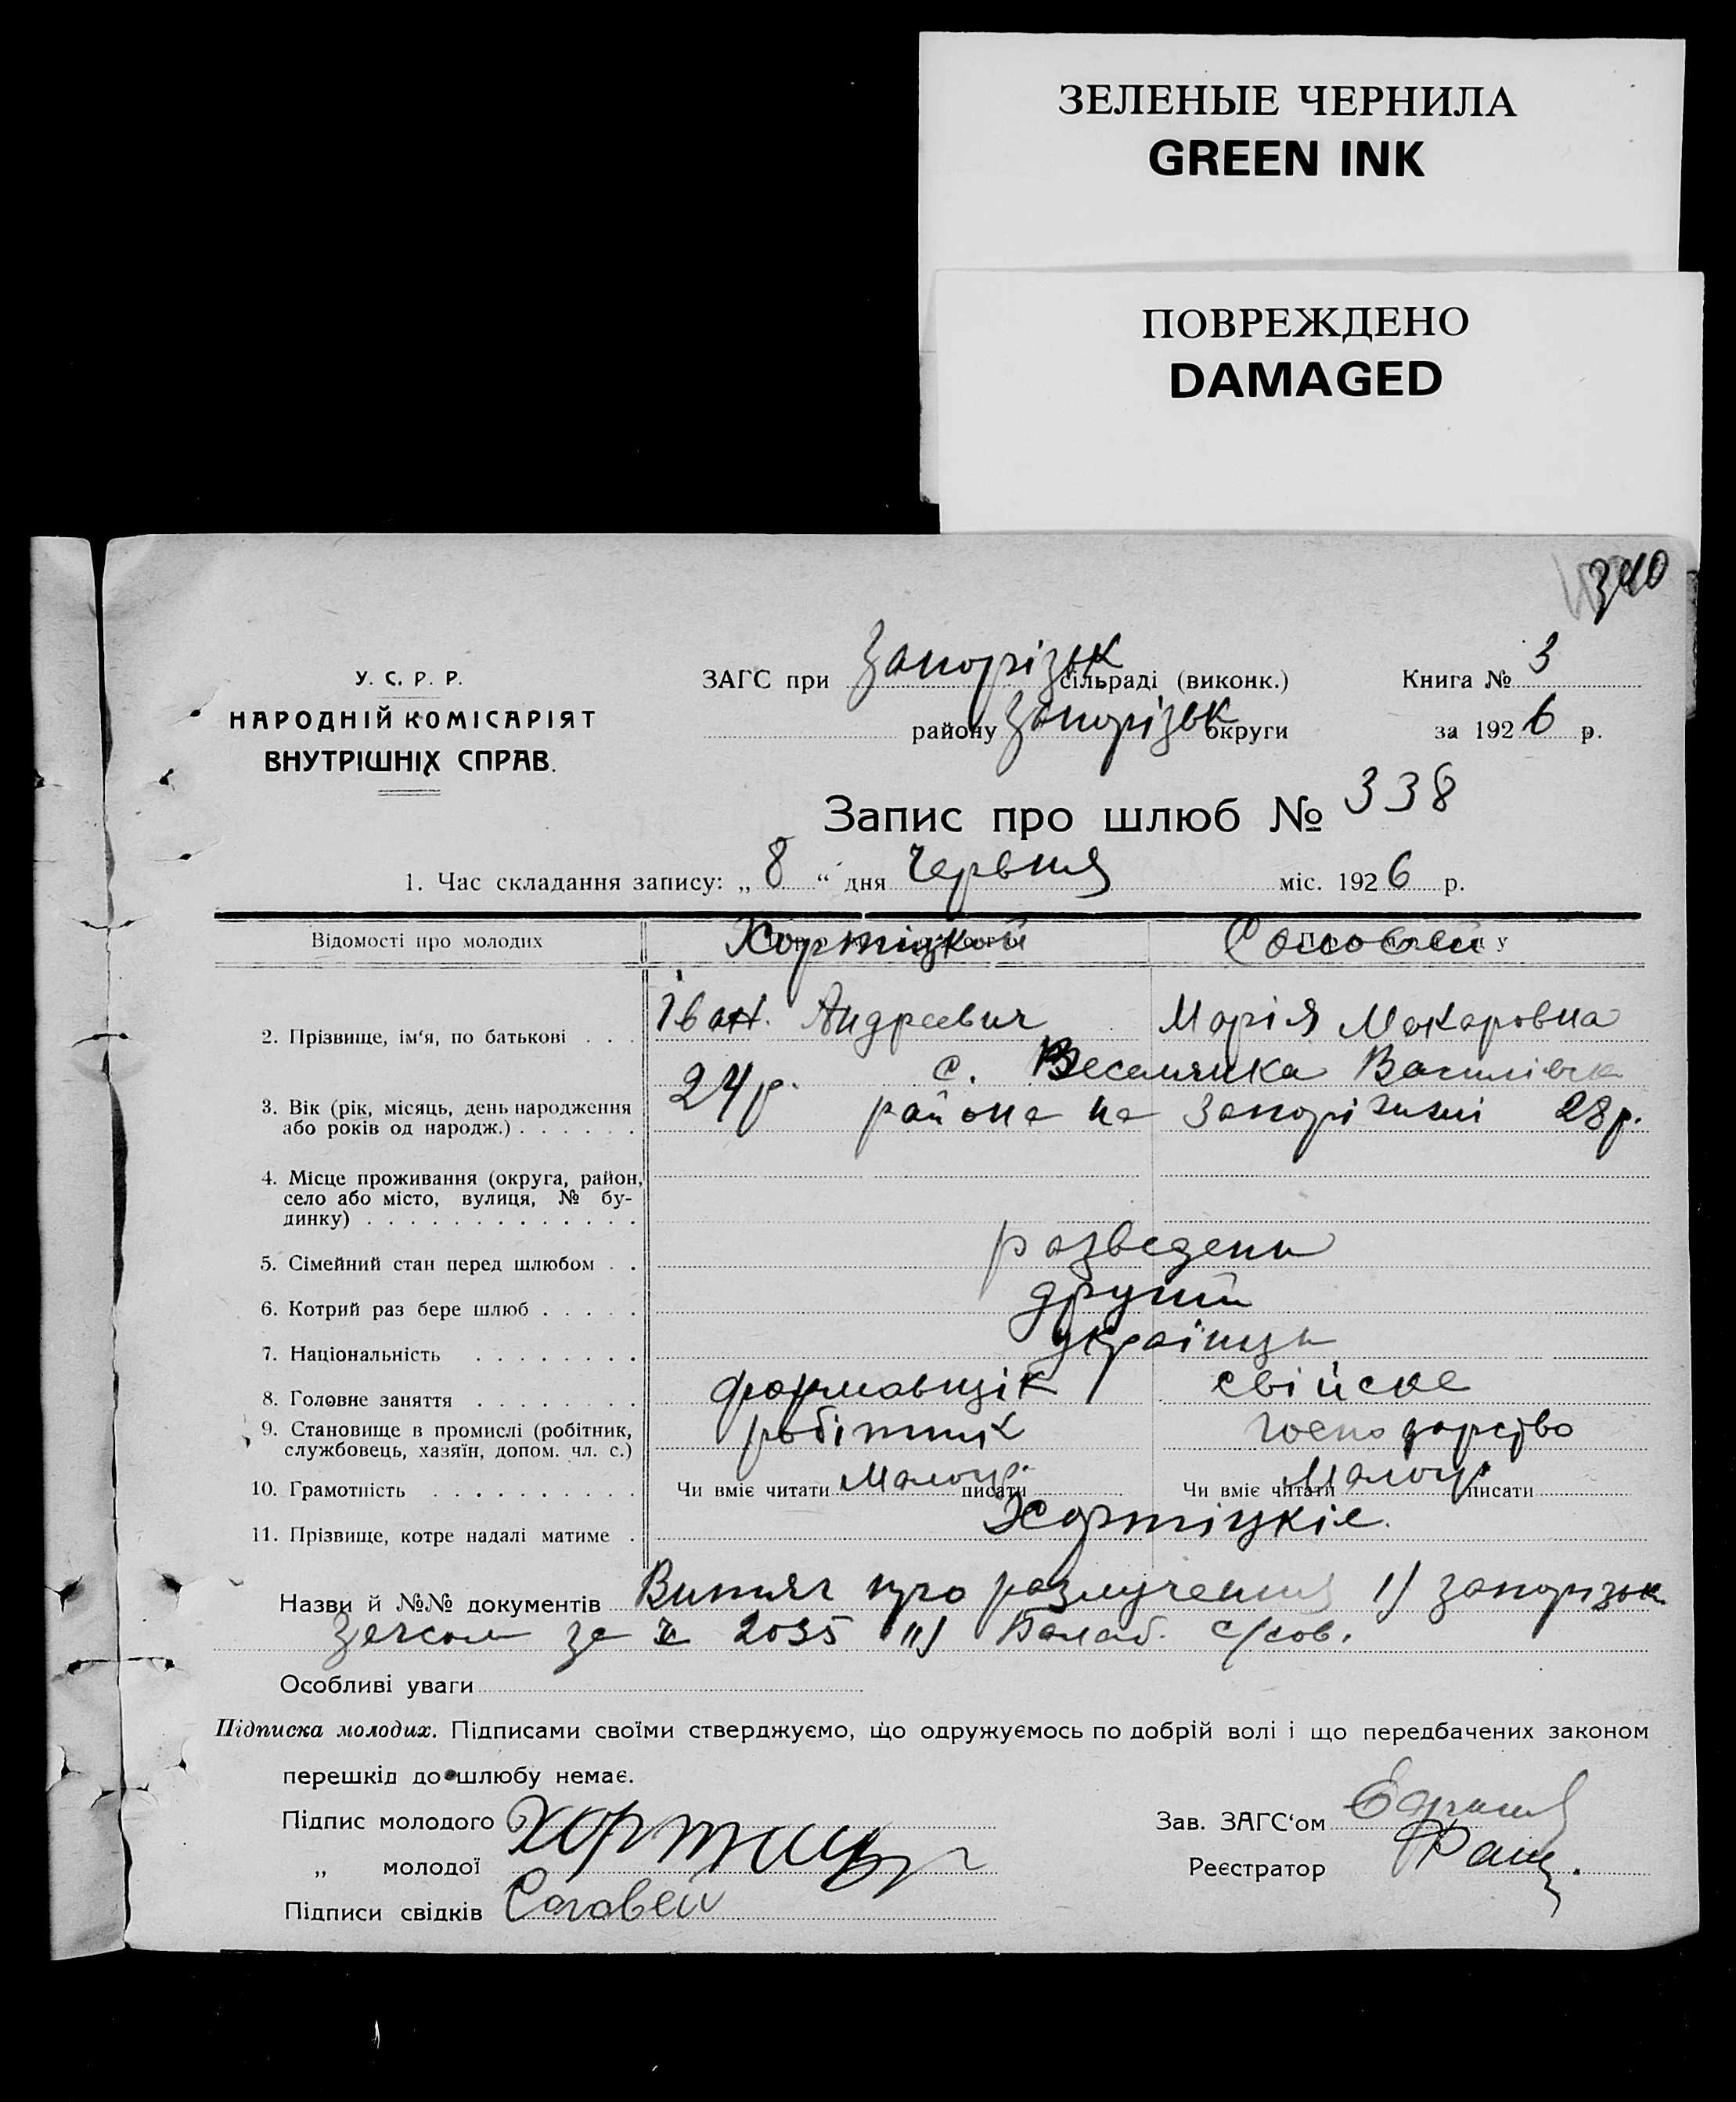 ЗЕЛЕНЫЕ ЧЕРНИЛА
GREEN INK
ПОВРЕЖДЕНО
DAMAGED
340
У. С. Р. Р.
НАРОДНІЙ КОМІСАРІЯТ
ВНУТРІШНІХ СПРАВ.
ЗАГС при Запорізьк сільраді (виконк.)
району Запорізьк округи
Книга № 3
за 1926 р.
Запис про шлюб № 338
1. Час складання запису: „8“ дня Червня міс. 1926 р.
Відомості про молодих Хортицкий Соловей
2. Прізвище, ім‘я, по батькові . . . Іван Андреевич Марія Макаровна
с. Веселянка Василівск
3. Вік (рік, місяць, день народження або років од народж.) . . . . . . 24 р. района на Запоріжжі 28 р.
4. Місце проживання (округа, район, село або місто, вулиця, № будинку) . . . . . . . . . . . . .
5. Сімейний стан перед шлюбом . . розведени
6. Котрий раз бере шлюб . . . . . другий
7. Національність . . . . . . . . українци
8. Головне заняття . . . . . . . . формавщік свійске
9. Становище в промислі (робітник, службовець, хазяїн, допом. чл. с.) робітник господарство
10. Грамотність . . . . . . . . . . Чи вміє читати Малогр. писати Чи вміє читати Малогр. писати
11. Прізвище, котре надалі матиме . Хортіцкіе.
Назви й №№ документів Витяг про разлучения 1) запорізьк
Загсом за № 2035 11) Балаб. с/сов.
Особливі уваги
Підписка молодих. Підписами своїми стверджуємо, що одружуємось по добрій волі і що передбачених законом
перешкід до шлюбу немає.
Підпис молодого Хортиц
„ молодої
Підписи свідків Соловей
Зав. ЗАГС‘ом
Реєстратор